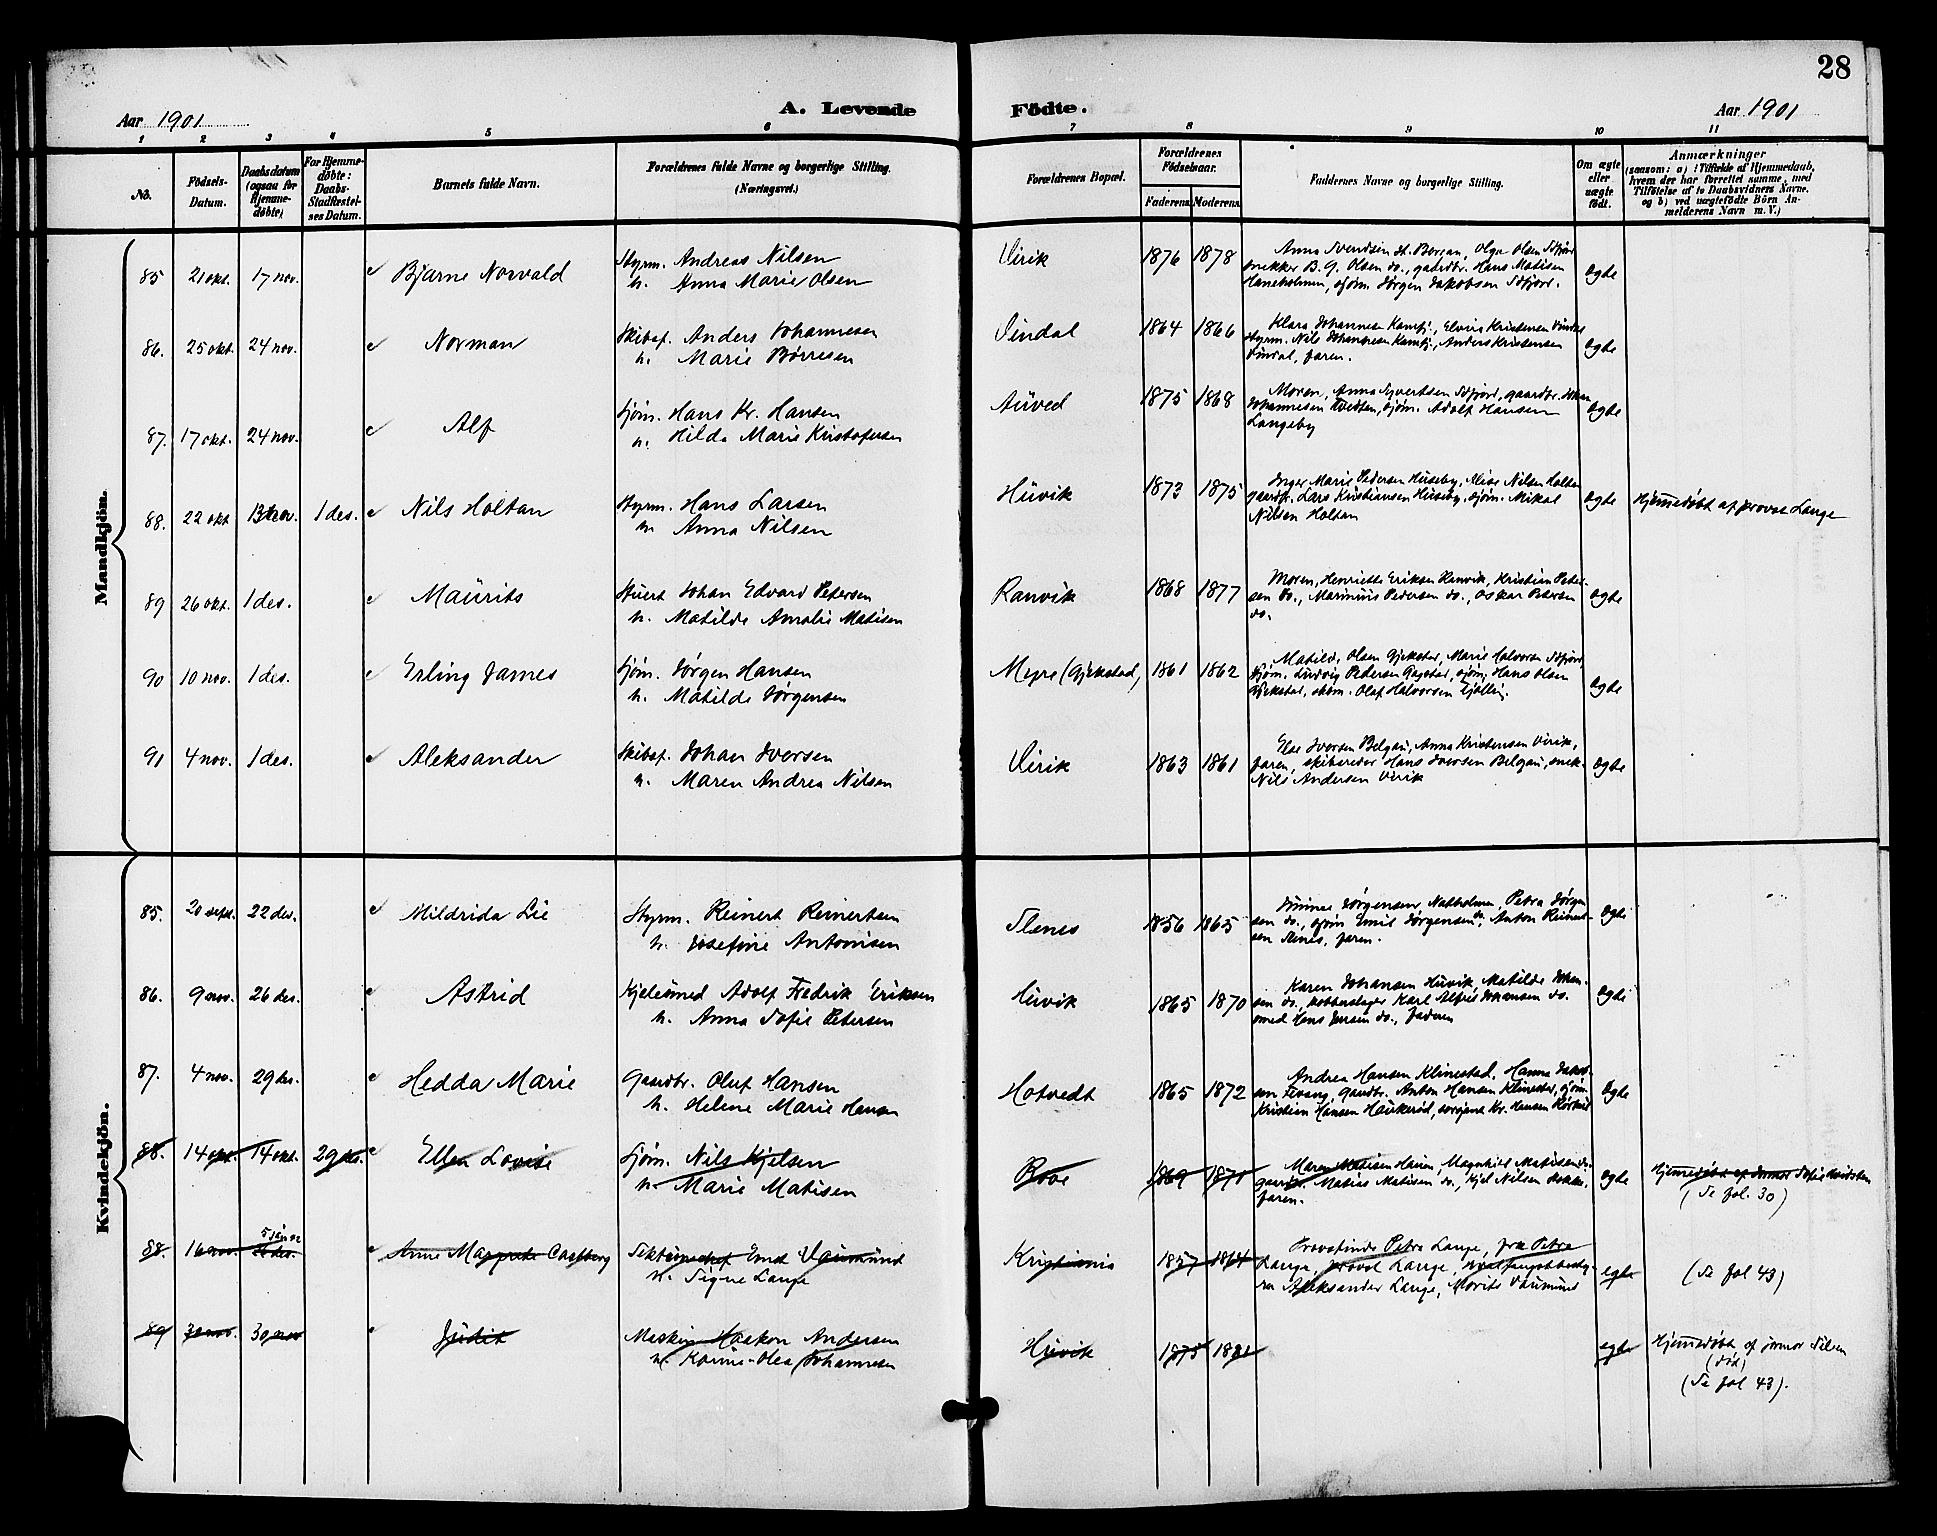 28
Aar 1901
A. Levende Födte.
Aar 1901
1 2 3 4 5 6 7 8 9 10 11
No.
Födsels-Datum.
Daabsdatum (ogsaa for Hjemmedöbte)
For Hjemmedöbte: Daabs-Stadfæstelses Datum.
Barnets fulde Navn.
Forældrenes fulde Navne og borgerlige Stilling. (Næringsvei.)
Forældrenes Bopæl.
Forældrenes Födselsaar.
Faderens. Moderens.
Faddernes Navne og borgerlige Stilling.
Om ægte eller uægte födt.
Anmærkninger
(saasom: a) i Tilfælde af Hjemmedaab, hvem der har forrettet samme, med Tilföielse af to Daabsvidners Navne, og b) ved uægtefödte Börn Anmelderens Navn m. V.)
Mandkjön.
85 21 okt. 17 nov. Bjarne Norvald
Styrm. Andreas Nilsen
h. Anna Marie Olsen
Virik 1876 1878
Anna Svendsen St. Bergan, Olga Olsen Sdfjord
snekker B. G. Olsen do., gaardbr. Hans Matisen
Haneholmen, sjøm. Jørgen Jakobsen Sdfjord.
ægte
86. 25 okt. 24 nov. Norman
Skibsf. Anders Johannesen
h. Marie Børresen
Vindal 1864 1866
Klara Johannesen Kamfj., Elvira Kristensen Vindal
styrm. Nils Johannesen Kamfj., Anders Kristensen
Vindal, faren.
ægte
87. 17 okt. 24 nov. Alf
Sjøm. Hans Kr. Hansen
h. Hilda Marie Kristofersen
Aüved 1875 1868
Moren, Anna Syvertsen Sdfjord, gaardbr. Johan
Johannesen Tvedten, sjøm. Adolf Hansen
Langeby
ægte
88. 22 okt 13 nov. 1 des. Nils Holtan
Styrm. Hans Larsen
h. Anna Nilsen
Hüvik 1873 1875
Inger Marie Pedersen Hüseby, Alise Nilsen Holtan
gaardbr. Lars Kristiansen Hüseby, sjøm. Mikal
Nilsen Holtan
ægte Hjemmedöbt af provst Lange
89 26 okt. 1 des. Maürits
Stuert Johan Edvard Petersen
h. Matilde Amalie Matisen
Ranvik 1868 1877
Moren, Henriette Eriksen Ranvik, Kristian Peter-
sen do., Marinüs Pedersen do., Oskar Petersen
do.
ægte
90 10 nov. 1 des. Erling James
Sjøm. Jørgen Hansen
h. Matilde Jørgensen
Mepe (Gjekstad) 1861 1862
Matilde Olsen Gjekstad, Marie Halvorsen Sdfjord
sjøm. Ludvig Pedersen Gogstad, sjøm. Hans Olsen
Gjekstad, skom. Olaf Halvorsen Tjølling.
ægte
91 4 nov. 1 des. Aleksander
Skibsf. Johan Iversen
h. Maren Andrea Nilsen
Virik 1863 1861
Else Iversen Belgau, Anna Kristensen Virik,
faren, skibsreder Hans Iversen Belgau, snek.
Nils Andersen Virik
ægte
Kvindekjön.
85. 20 sept. 22 des. Mildrida Lie
Styrm. Reinert Reinertsen
h. Josefine Antonisen
Stenes 1856 1865
Jørgensen Natholmen, Petra Jørgen
sen do., sjøm Emil Jørgensen do, Anton Reinert-
sen Stenes, faren.
ægte
86. 9 nov. 26 des. Astrid
Kjelesmed Adolf Fredrik Eriksen
h. Anna Sofie Petersen
Hüvik 1865 1870
Karen Johansen Hüvik, Matilde Johan-
sen do., kobberslager Karl Alfred Johansen do.
smed Hans Jensen do., faderen
ægte
87. 4 nov. 29 des. Hedda Marie
Gaardbr. Oluf Hansen
h. Helene Marie Hansen
Hotvedt 1865 1872
Andrea Hansen Klinestad, Hanna Jakob-
sen Fevang, gaardbr. Anton Hansen Klinestad, sjøm.
Kristian Hansen Haukerød, sergeant Kr. Hansen
ægte
88. 14 okt. 14 okt. 29 des. Ellen Lovise
Sjøm. Nils Kjelsen
h. Marie Matisen
Rove 1869 1871
Maren Matisen Hauen, Magnhild Matisen do.
gaardbr. Matias Matisen do., Kjel Nilsen
faren.
ægte Hjemmedöbt af Jormor Sofie
(Se fol. 30)
88. 16 nov. 26 des. 5 jan 02 Anne Margrete Castberg
Sektionschef Ernst Vaumund
h. Signe Lange
Kristiania 1857 1864
Provstinde Petra Lange, frk Petra
Lange, provst Lange,
Aleksander Lange, Morits Vaumund
ægte (Se fol 43)
89 30 nov. 30 nov Judit
Maskin. Haakon Andersen
h. Karine Olea Johannesen
Hüvik 1875 1881
ægte Hjemmedöbt af jormor Nilsen
(død)
(Se fol 43).